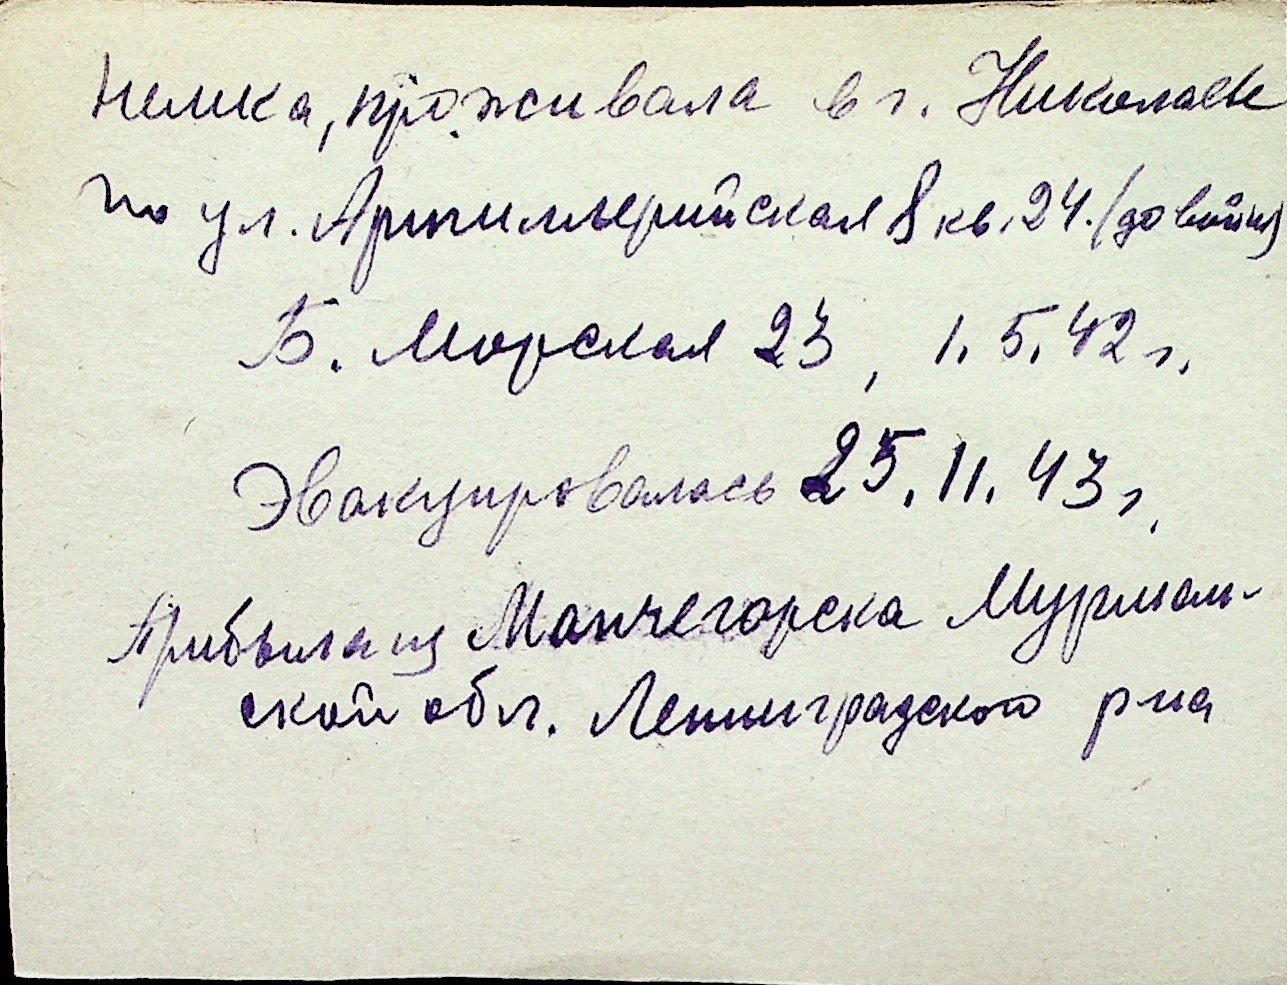 немка, проживала в г. Николаеве
по ул. Артиллерийская 8 кв. 24. (до войны)
Б. Морская 23, 1.5.42 г.
Эвакуировалась 25.11.43 г.
Прибыла из Мончегорска Мурман-
ской обл. Ленинградского р-на